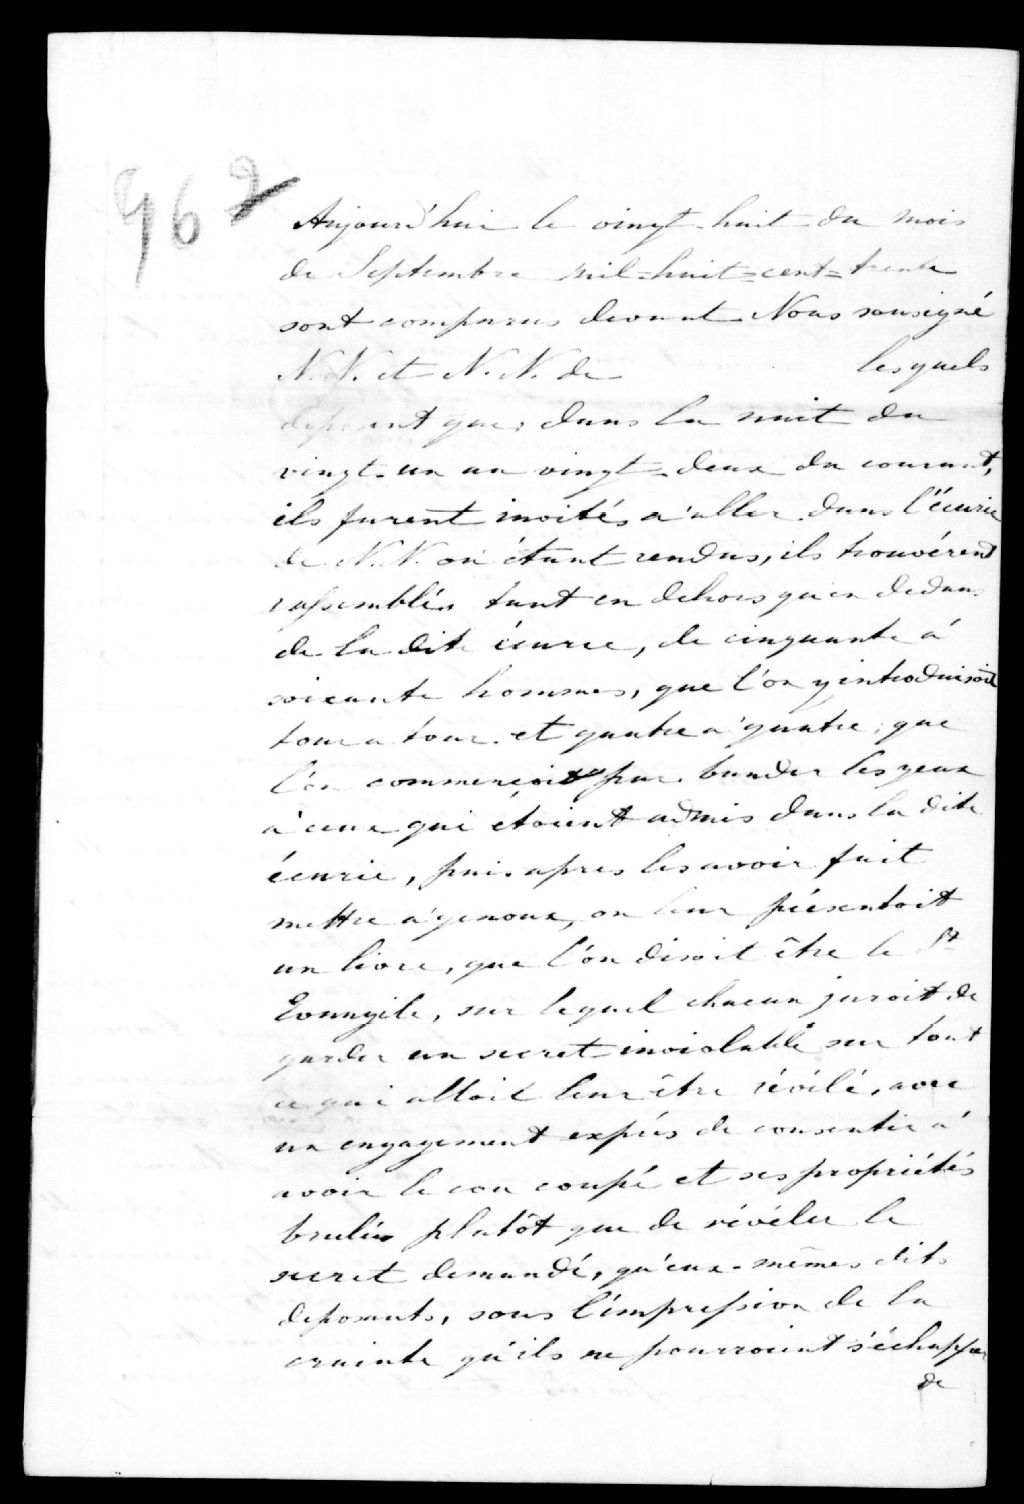 962
Aujourd'hui le vingt-huit du mois
de Septembre mil=huit=cent=trente
sont comparus devant Nous sousigné
N. N. et N. N. de lesquels
deposent que, dans la nuit du
vingt-un au vingt-deux du courant,
ils furent invités a aller dans l'écurie
de N. N. où étant rendus, ils trouvérent
rassemblés tant en dehors qu'en dedans
de la dite écurie, de cinquante á
soixante hommes, que l'on y introduisoit
tour a tour et quatre a quatre; que
l'on commençoit par bander les yeux
a ceux qui étoient admis dans la dite
écurie, puis apres les avoir fait
mettre a genoux, on leur présentoit
un livre, que l'on disoit être le St
Evangile, sur lequel chacun juroit de
garder un secret inviolable sur tout
ce qui alloit leur être révélé, avec
un engagement exprès de consentir á
avoir le cou coupé et ses propriétés
brulées plutôt que de révéler le
secret demandé, qu'eux-mêmes dits
deposants, sous l'impression de la
crainte qu'ils ne pourroient s'échapper
de